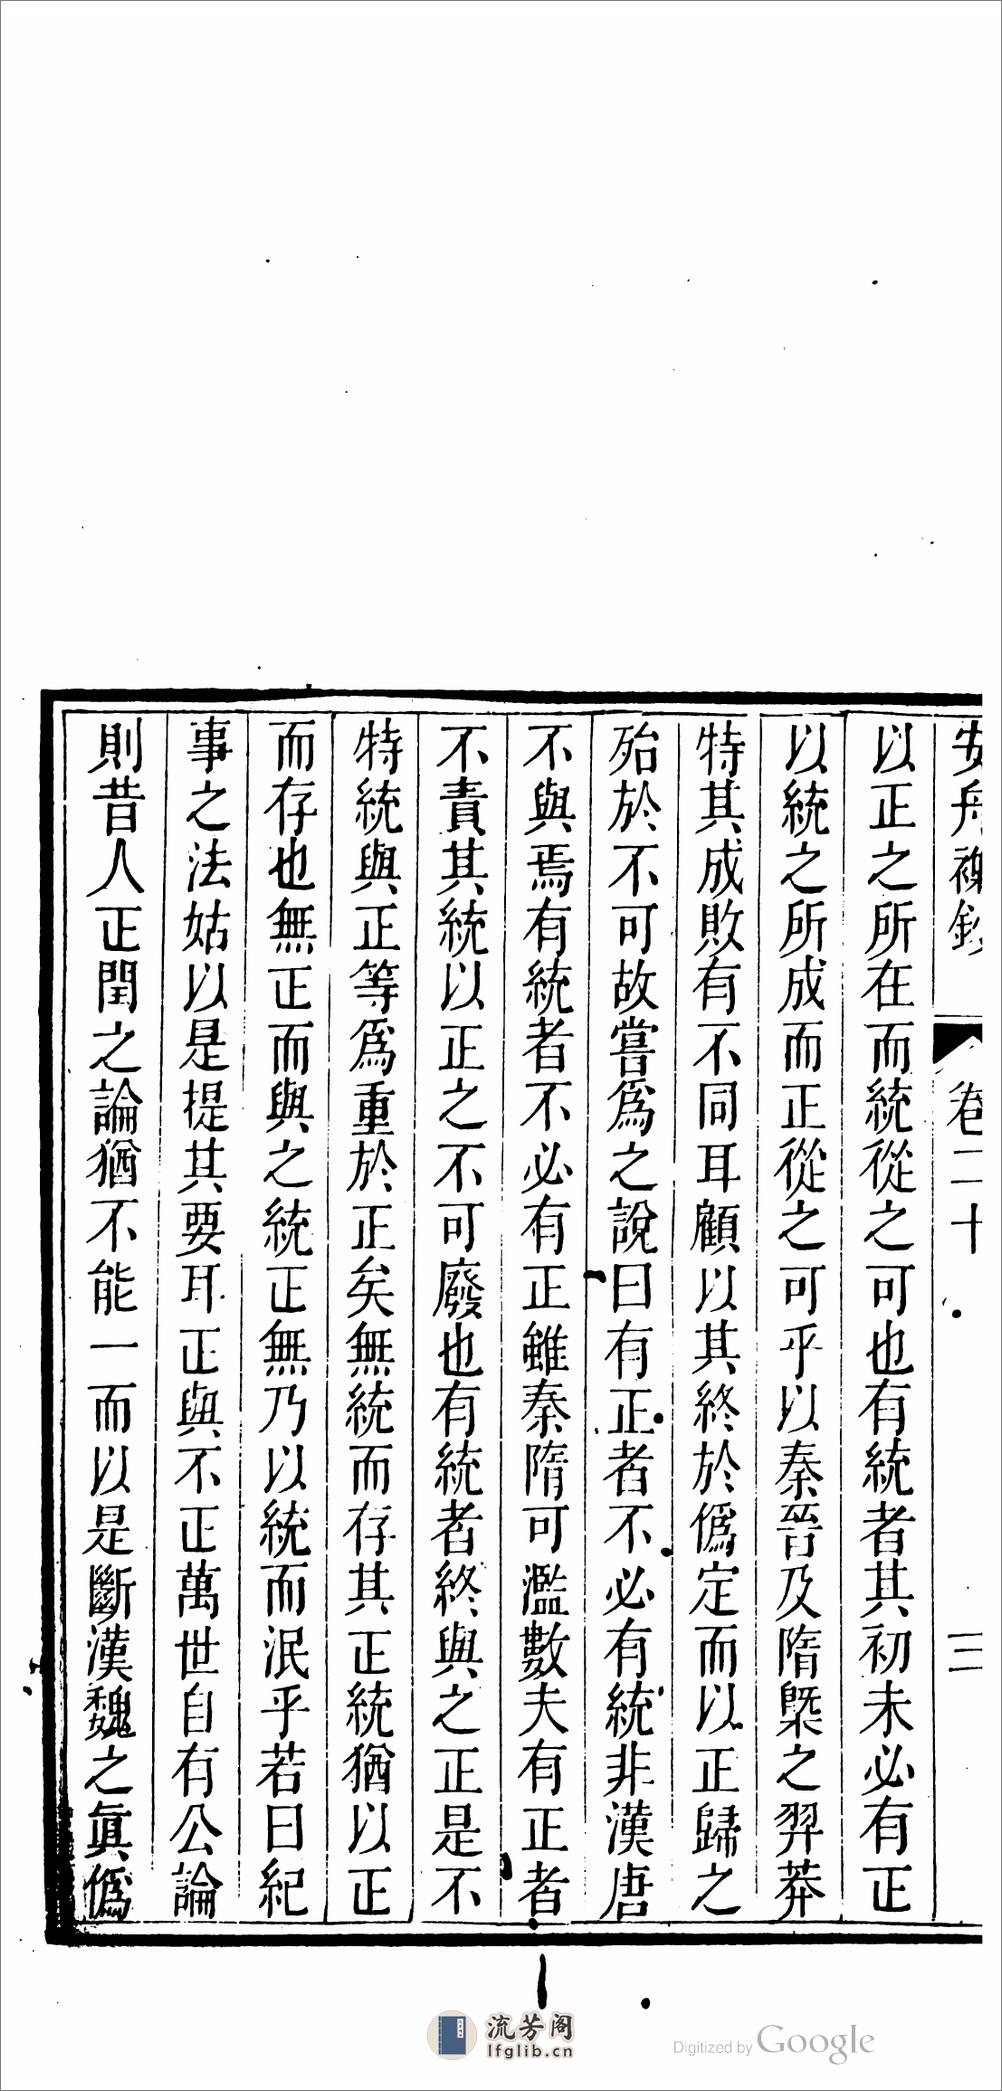 安舟襍鈔 卷二十 三
以正之所在而統從之可也有統者其初未必有正
以統之所成而正從之可乎以秦晉及隋槩之羿莽
特其成敗有不同耳顧以其終於僞定而以正歸之
殆於不可故嘗爲之說曰有正者不必有統非漢唐
不與焉有統者不必有正雖秦隋可濫數夫有正者
不責其統以正之不可廢也有統者終與之正是不
特統與正等爲重於正矣無統而存其正統猶以正
而存也無正而與之統正無乃以統而泯乎若曰紀
事之法姑以是提其要耳正與不正萬世自有公論
則昔人正閏之論猶不能一而以是斷漢魏之眞僞
流芳阁
lfglib.cn
Digitized by Google